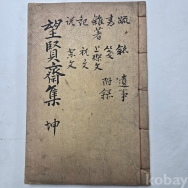 望賢齋集 坤
疏 啟 遺事
書 箋 附錄
雜著 上樑文
記 祝文
說 祭文
kobay